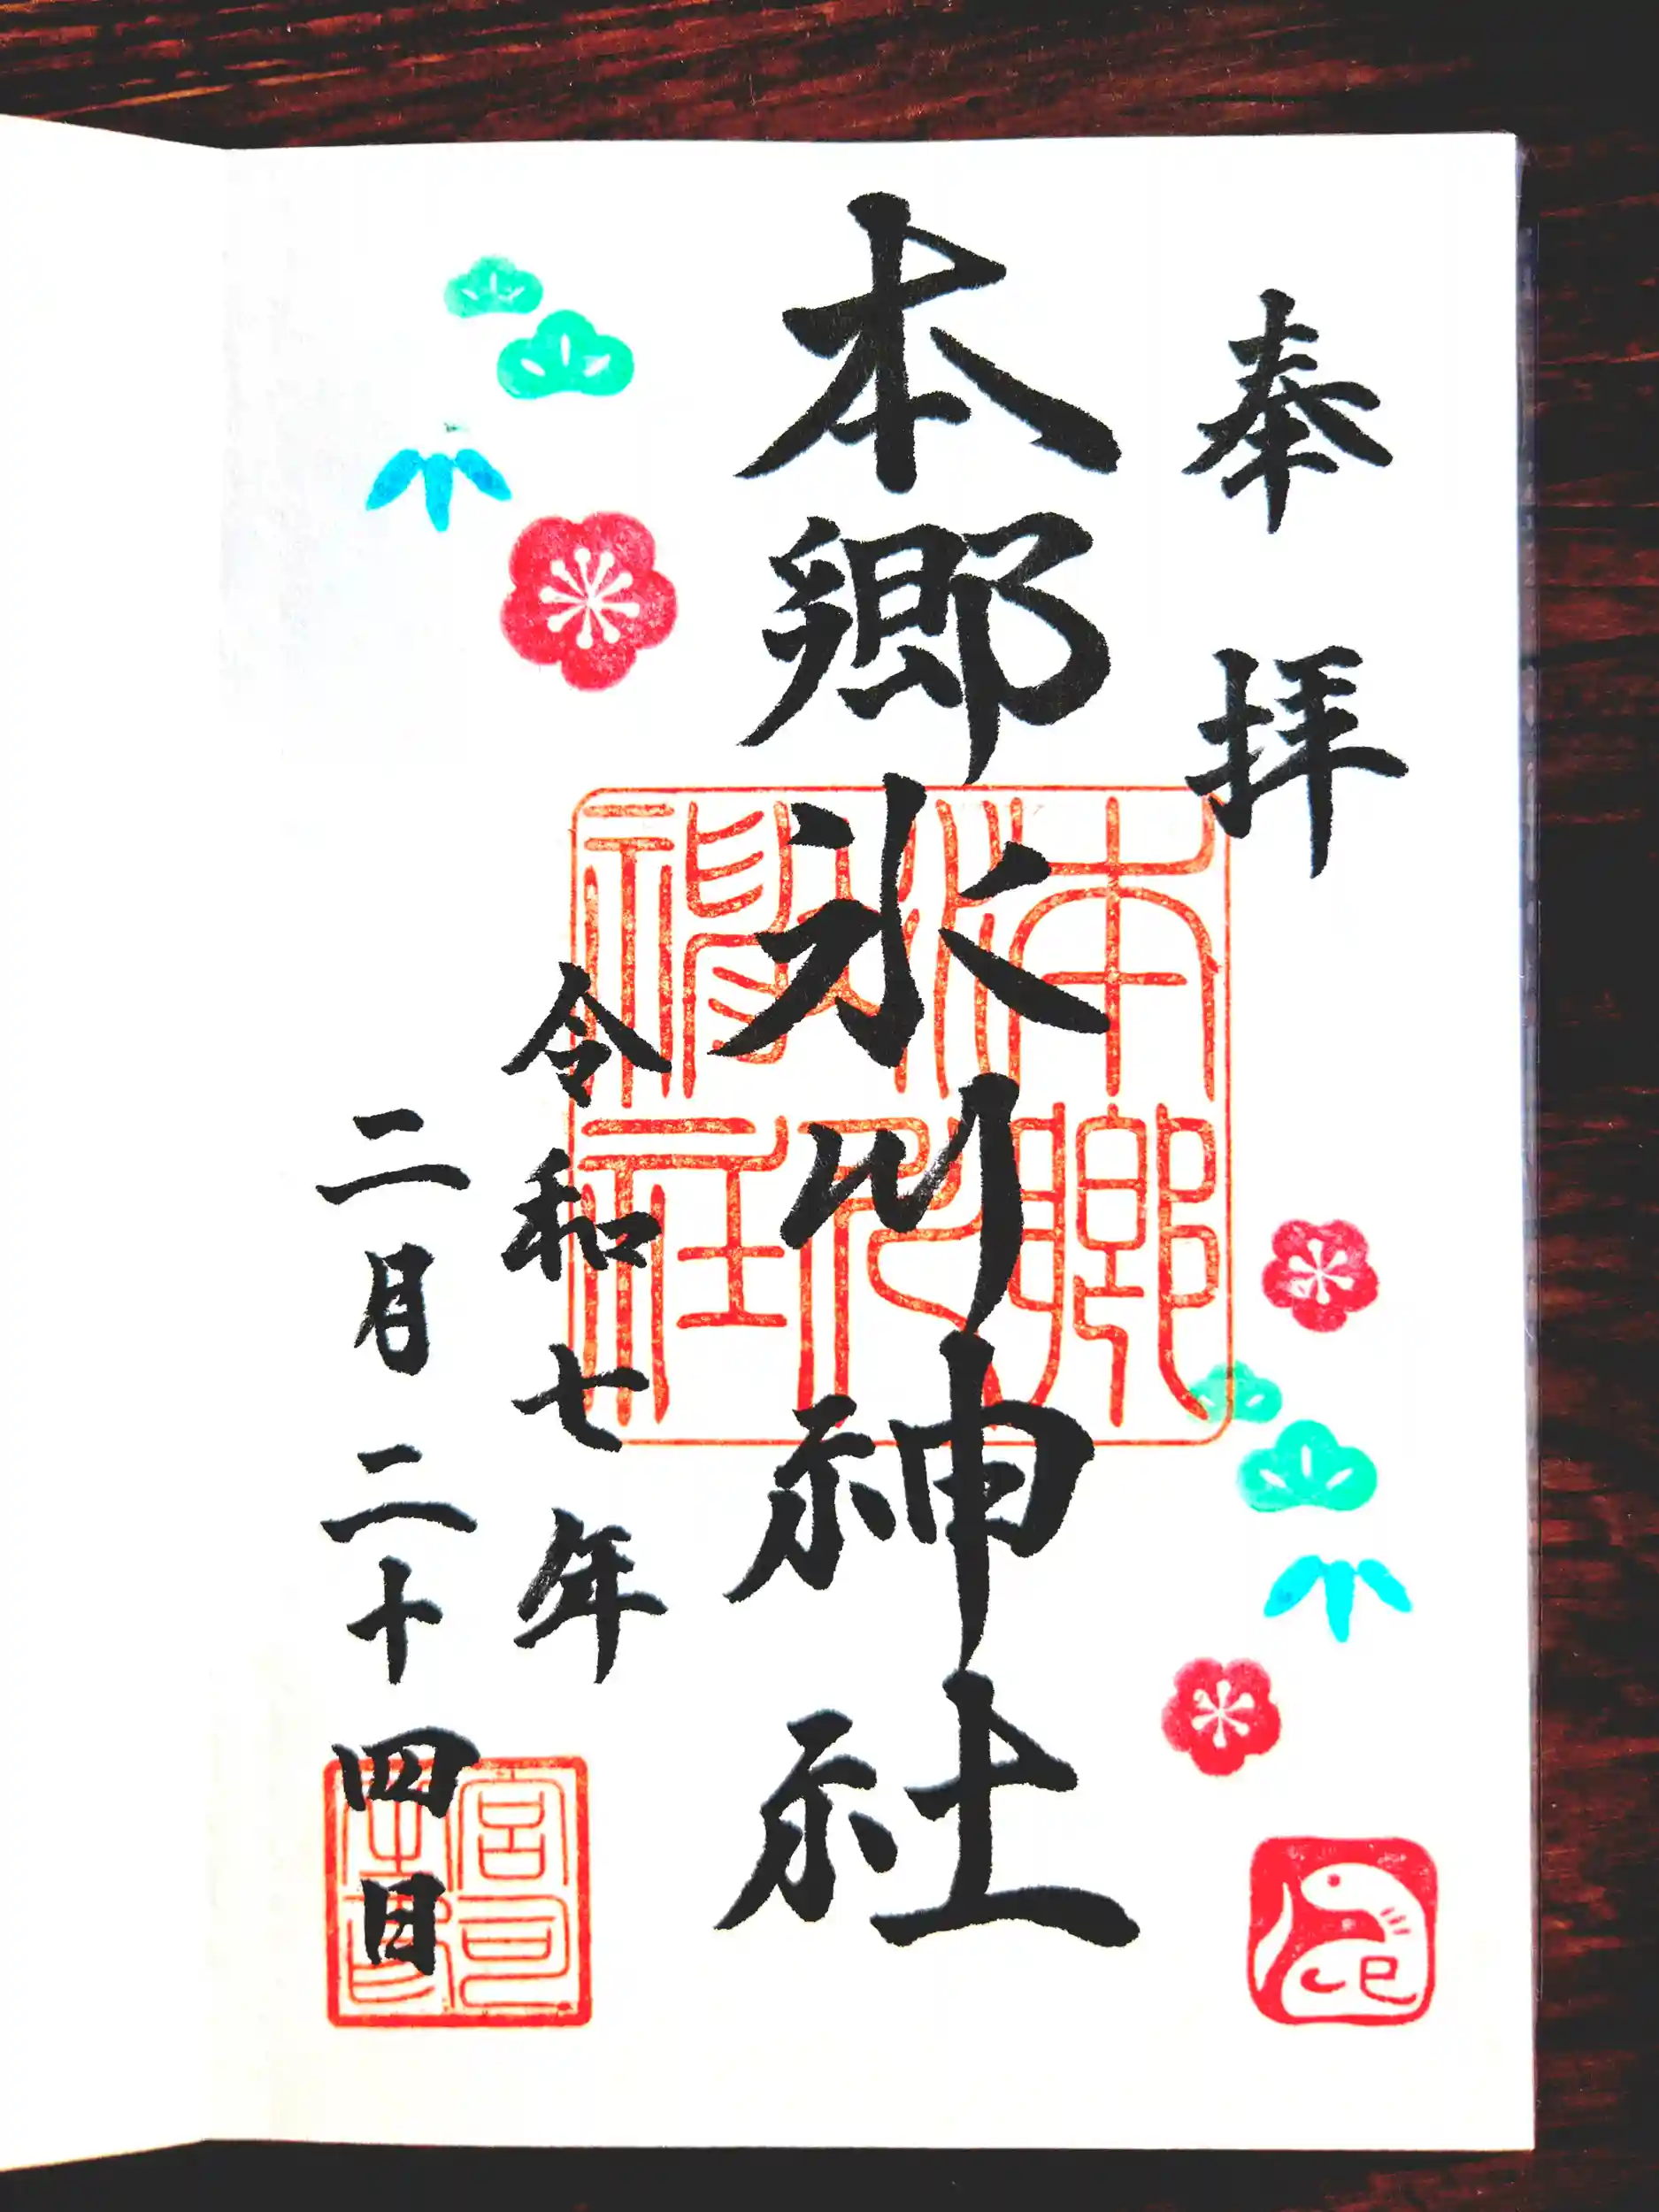 奉拝
本郷氷川神社
本郷
氷川
神社
令和七年
二月二十四日
宮司
之印
巳